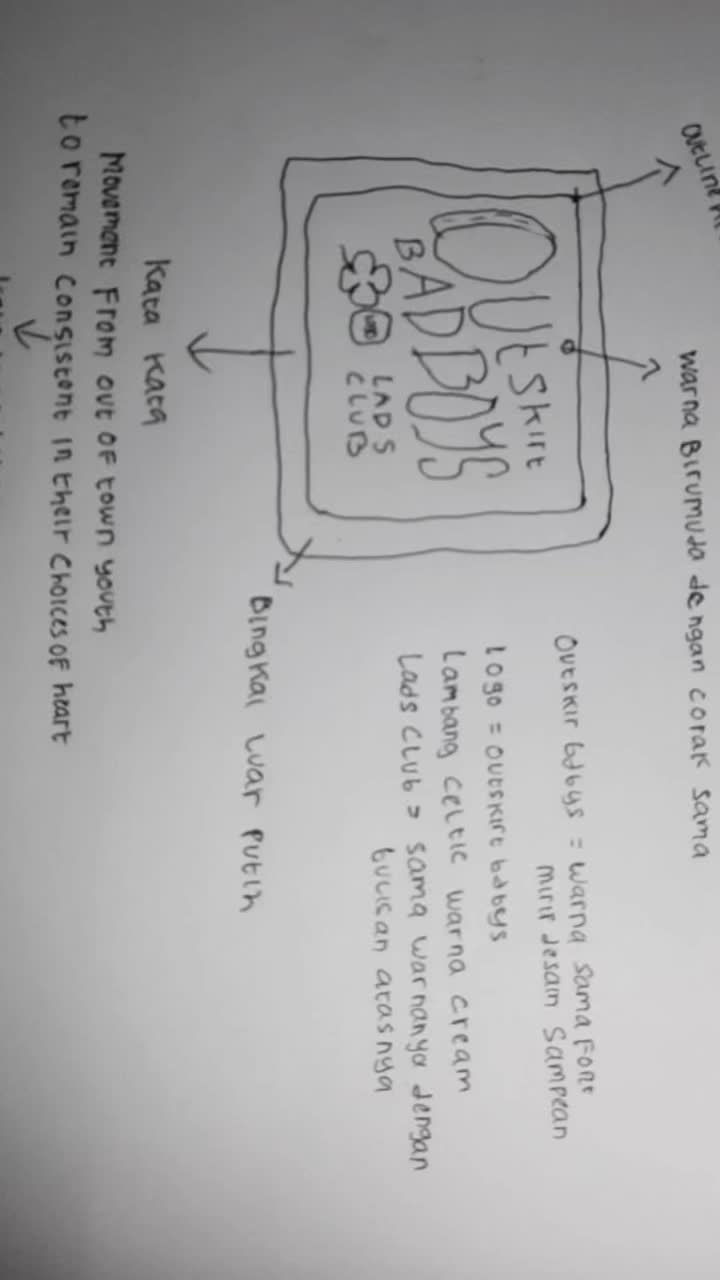 outline
warna Birumuda dengan corak sama
OUtSkirt
BAD BOYS
LADS
CLUB
Outskir bdbys = warna sama Font
mirip desain sampean
Logo = outskirt bdbys
Lambang celtic warna cream
Lads CLub > sama warnanya dengan
tulisan atasnya
Bingkai luar putih
Kata Kata
Movement From out of town youth
to remain consistent in their choices of heart